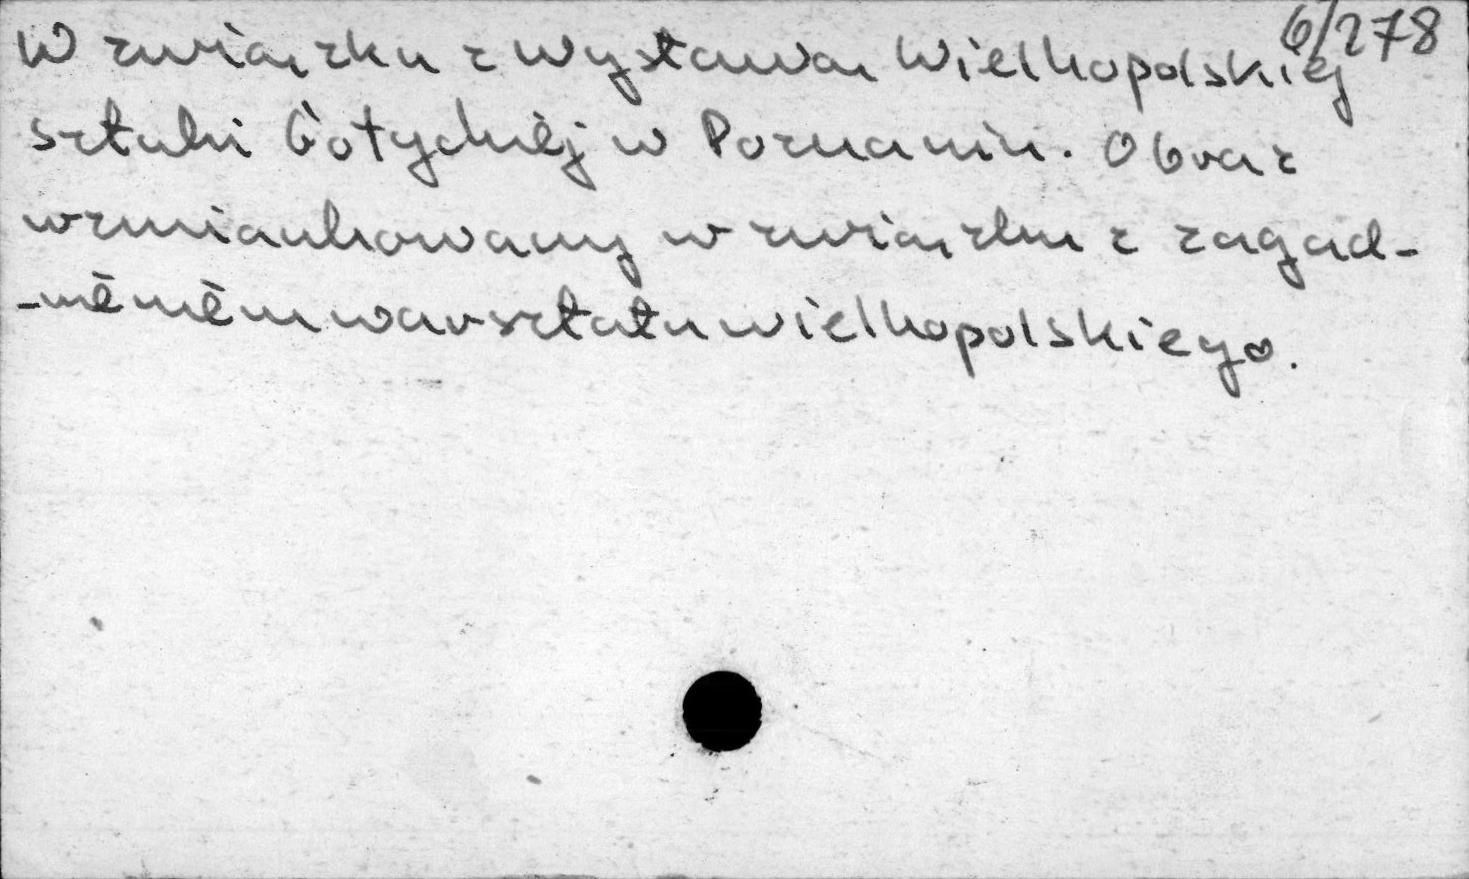 6/278
W związku z Wystawą Wielkopolskiej
sztuki Gotyckiej w Poznaniu. Obraz
wzmiankowany w związku z zagad-
-nieniem warsztatu wielkopolskiego.